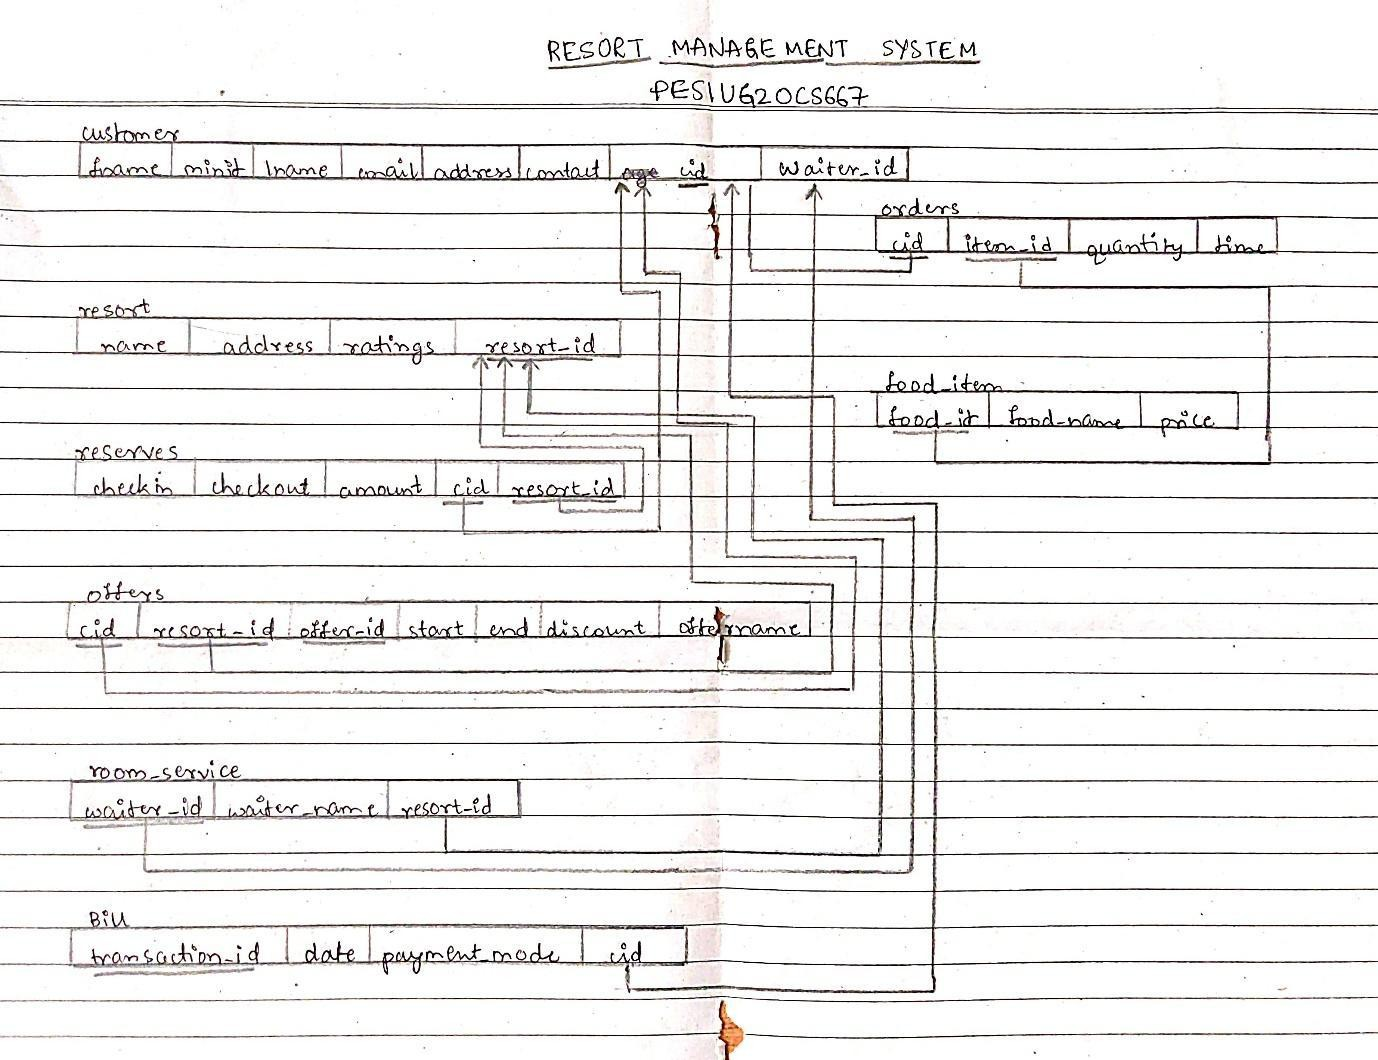 RESORT MANAGEMENT SYSTEM
PES1UG20CS667
customer
fname minit lname email address contact age cid waiter_id
orders
cid item_id quantity time
resort
name address ratings resort_id
food_item
food_id food_name price
reserves
checkin checkout amount cid resort_id
offers
cid resort_id offer_id start end discount offername
room_service
waiter_id waiter_name resort_id
Bill
transaction_id date payment_mode cid